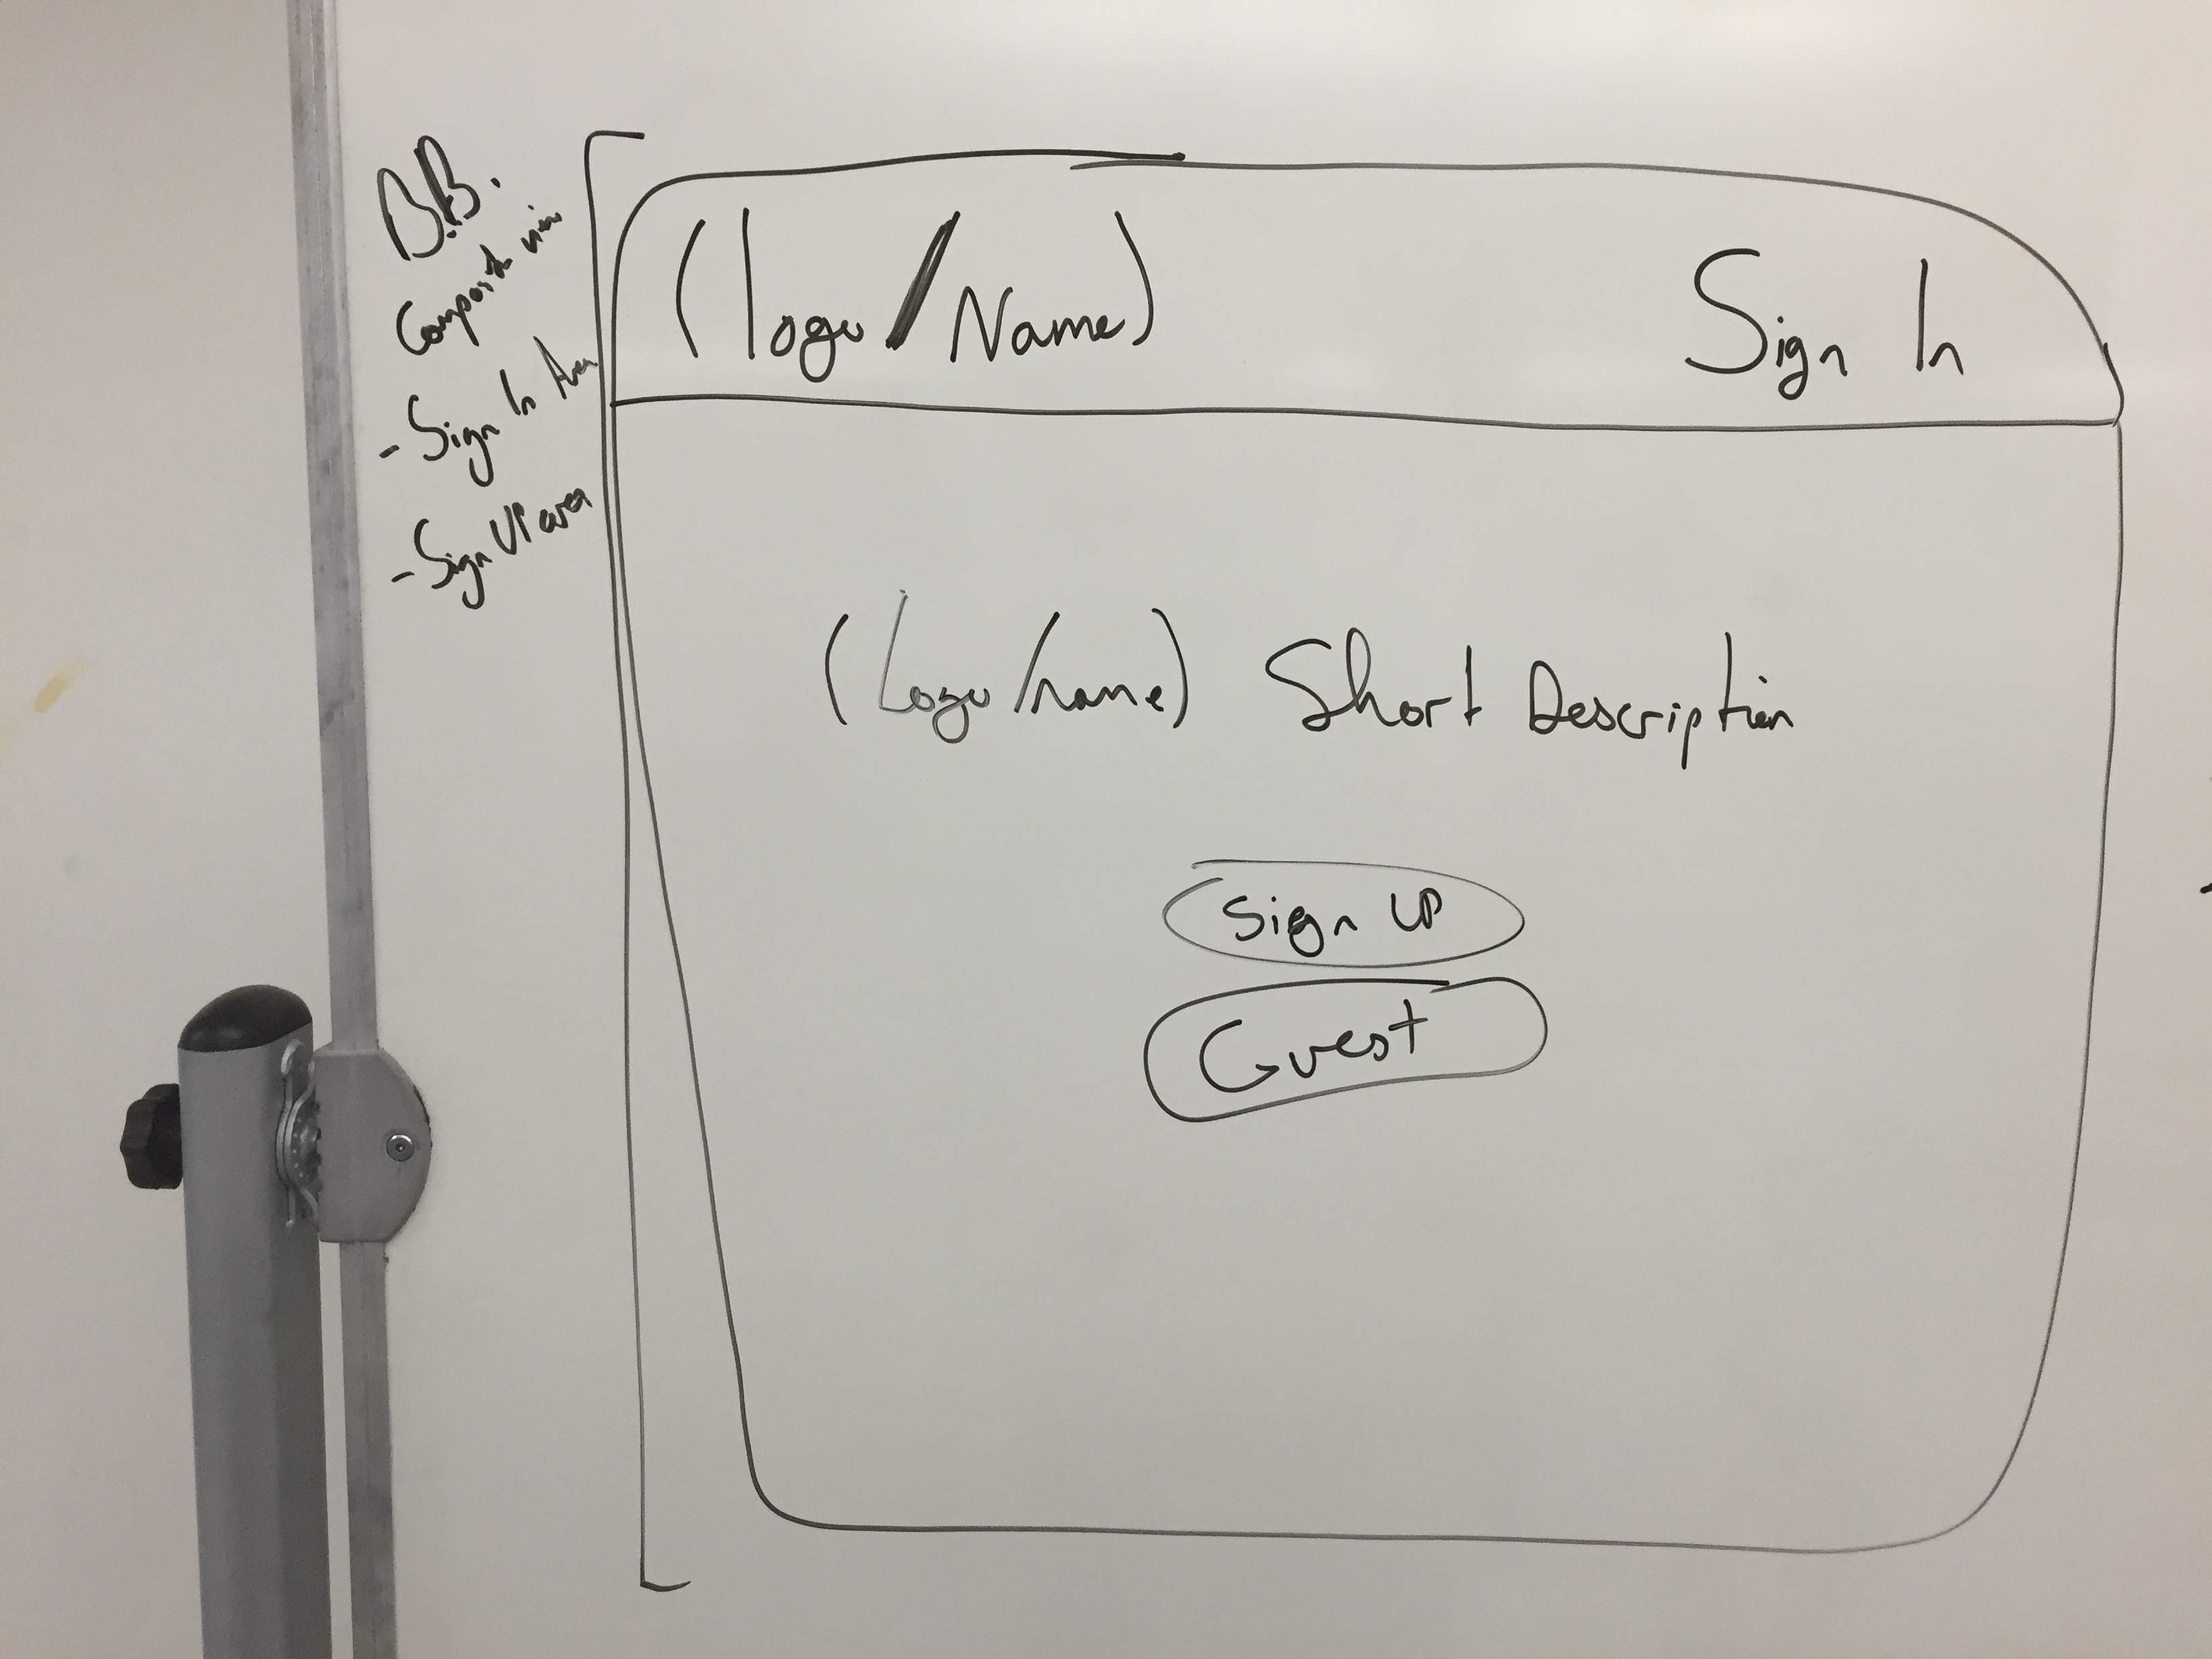 B.B.
Composite view
- Sign In Area
- Sign UP area
(logo/Name)
Sign In
(Logo/name) Short Description
Sign UP
Guest